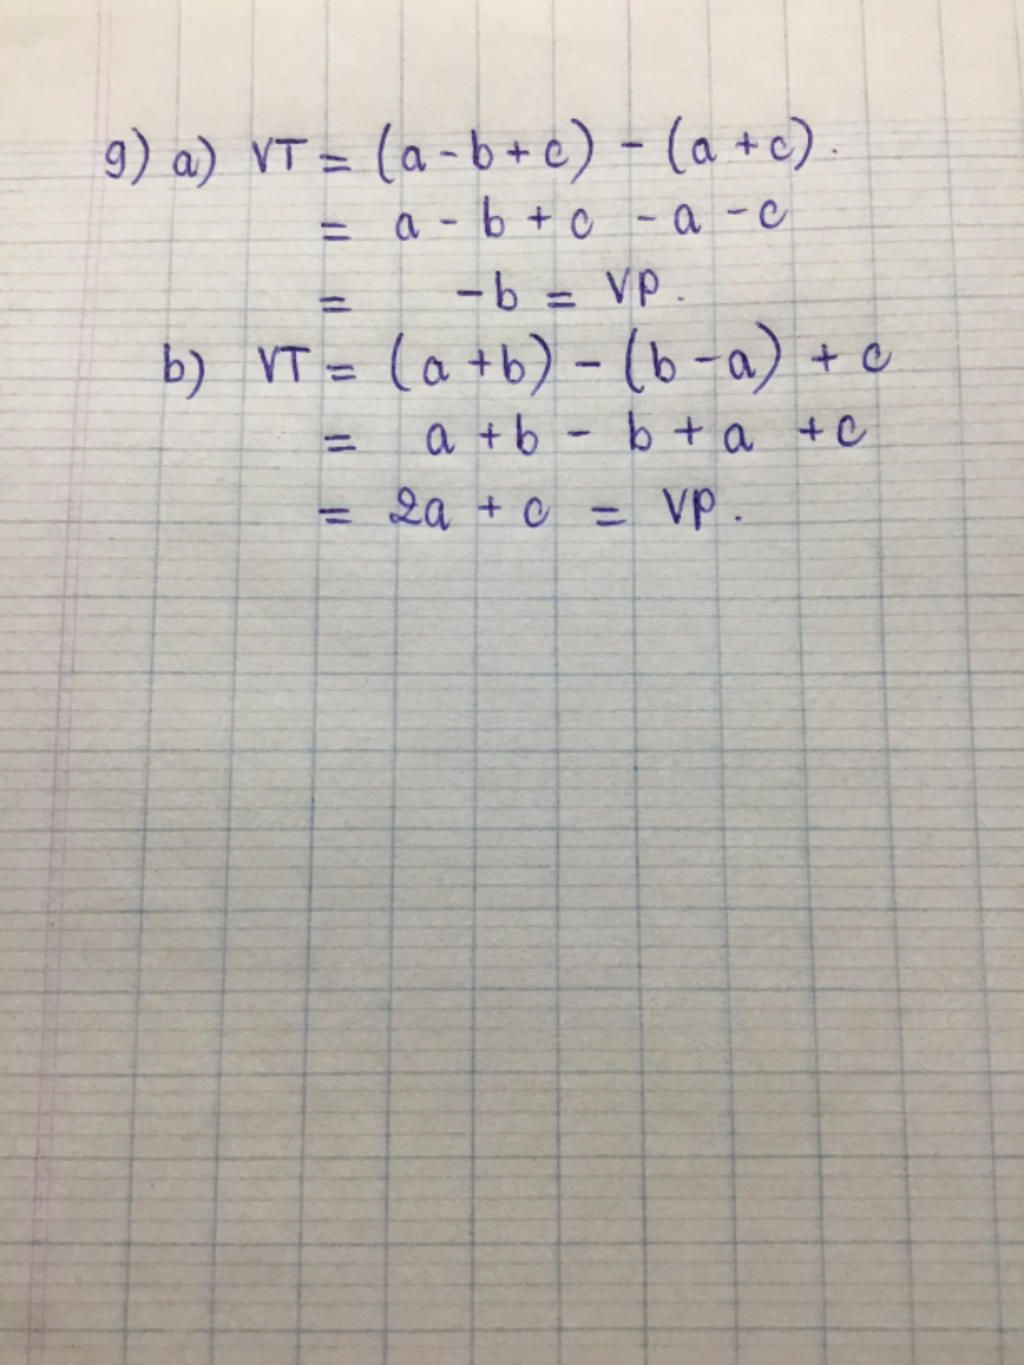 9) a) VT = (a - b + c) - (a + c).
= a - b + c - a - c
= -b = VP.
b) VT = (a + b) - (b - a) + c
= a + b - b + a + c
= 2a + c = VP.